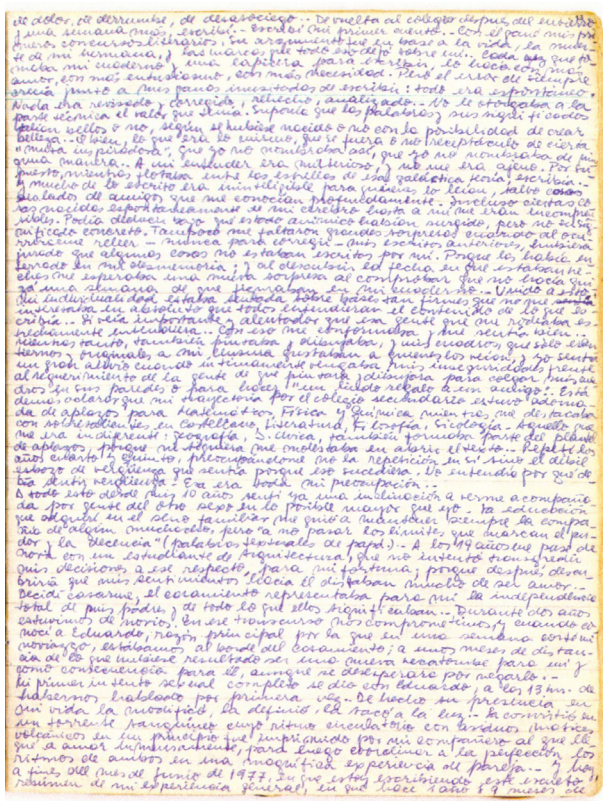 de dolor, de derrumbe, de desasosiego... De vuelta al colegio después del entierro
y una semana más, escribí.- Escribí mi primer cuento.- Con él gané mis pri
meros concursos literarios. Su argumento fue en base a la vida, la muer-
te de mi hermana, las marcas que todo eso dejó sobre mí. Cada vez que to-
maba mi cuaderno y una lapicera para escribir, lo hacía con más
amor, con más entusiasmo, con más necesidad. Pero el error de siempre
crecía junto a mis ganas inusitadas de escribir: todo era espontáneo.
Nada era revisado, corregido, rehecho, analizado.- No le otorgaba a la
parte técnica el valor que tenía. Suponía que las palabras y sus significados
salían bellos o no, según se hubiese nacido o no con la posibilidad de crear
belleza. O bien, lo que era lo mismo, que se fuera o no receptáculo de cierta
"musa inspiradora", que yo no manejaba, que yo no nombraba de nin
guna manera.- A mi entender era misterioso y no me era ajeno. Por su-
puesto, mientras flotaba entre las estrellas de esa galáctica poesía, escribía
y mucho de lo escrito era ininteligible para quienes lo leían, salvo casos
aislados de amigos que me conocían profundamente. Incluso ciertas co
sas nacidas espontáneamente de mi cerebro hasta a mí me eran incompren
sibles. Podía deducir bajo qué estado anímico habían surgido, pero no su sig-
nificado concreto. Tampoco me faltaron grandes sorpresas cuando al ocu-
rrírseme releer - nunca para corregir - mis escritos anteriores, hubiera
jurado que algunas cosas no estaban escritas por mí. Porque las había en-
terrado en mi desmemoria y al descubrir la fecha en que estaban he-
chas me esperaba una nueva sorpresa al comprobar que no hacía qui
zá una semana de que figuraban en mi cuaderno.- Unido a esto
mi individualidad estaba sentada sobre bases tan firmes que no me
interesaba en absoluto que todos entendieran el contenido de lo que es
cribía.- Sí era importante y alentador que esa gente que me rodeaba es-
pecialmente entendiera.- Con eso me conformaba y me sentía bien.-
Mientras tanto, también pintaba y dibujaba, y mis cuadros, que sólo eran
tiernos y originales a mí misma gustaban a quienes los veían, y yo sentía
un gran alivio cuando internamente enjugaba mis inseguridades frente
al requerimiento de la gente de que pintara y dibujara para colgar mis cua
dros en sus paredes o para hacer "un lindo regalo a un amigo". Está
demás aclarar que mi trayectoria por el colegio secundario estuvo adorna-
da de aplazos para Matemáticas, Física y Química mientras me destacaba
con sobresalientes en Castellano, Literatura, Filosofía, Sicología. Aquello que
me era indiferente: geografía, I. cívica, también formaba parte del plantel
de aplazos, porque ni siquiera me molestaba en abrir el texto.- Repetí los
años cuarto y quinto, preocupándome no la repetición en sí sino el débil
esbozo de vergüenza que sentía porque eso sucediera.- No entendía por qué de-
bía sentir vergüenza.- Esa era toda mi preocupación.-
A todo esto desde mis 10 años sentí ya una inclinación a verme acompaña
da por gente del otro sexo en lo posible mayor que yo.- La educación
que adquirí en el seno familiar me guió a mantener siempre la compa
ñía de algún muchacho, pero "a no pasar los límites que marcan el pu-
dor y la decencia" (palabras textuales de papá).- A los 19 años me puse de
novia con un estudiante de Arquitectura, que no intentó transgredir
mis decisiones a ese respecto, para mi fortuna; porque después descu-
briría que mis sentimientos hacia él distaban mucho de ser amor.-
Decidí casarme, el casamiento representaba para mí la independencia
total de mis padres y de todo lo que ellos significaban.- Durante dos años
estuvimos de novios. En ese transcurso nos comprometimos, y cuando co
nocí a Eduardo, razón principal por la que en una semana corté mi
noviazgo, estábamos al borde del casamiento; a unos meses de distan-
cia de lo que hubiese resultado ser una nueva hecatombe para mí y
como consecuencia para él, aunque se desesperara por negarlo.-
Mi primer intento sexual completo se dio con Eduardo, a las 13 hrs. de
habernos hablado por primera vez.- De hecho su presencia en
mi vida la modificó, la definió, la sacó a la luz.- La convirtió en
un torrente sanguíneo cuyo ritmo circulatorio con arduos matices
volcánicos en un principio fue imprimido por mi compañero al que lle
gué a amar inmensamente, para luego coordinar a la perfección los
ritmos de ambos en una magnífica experiencia de pareja.- Y hoy
a fines del mes de Junio de 1977, en que estoy escribiendo este escueto
resumen de mi experiencia general, en que hace 1 año y 9 meses de